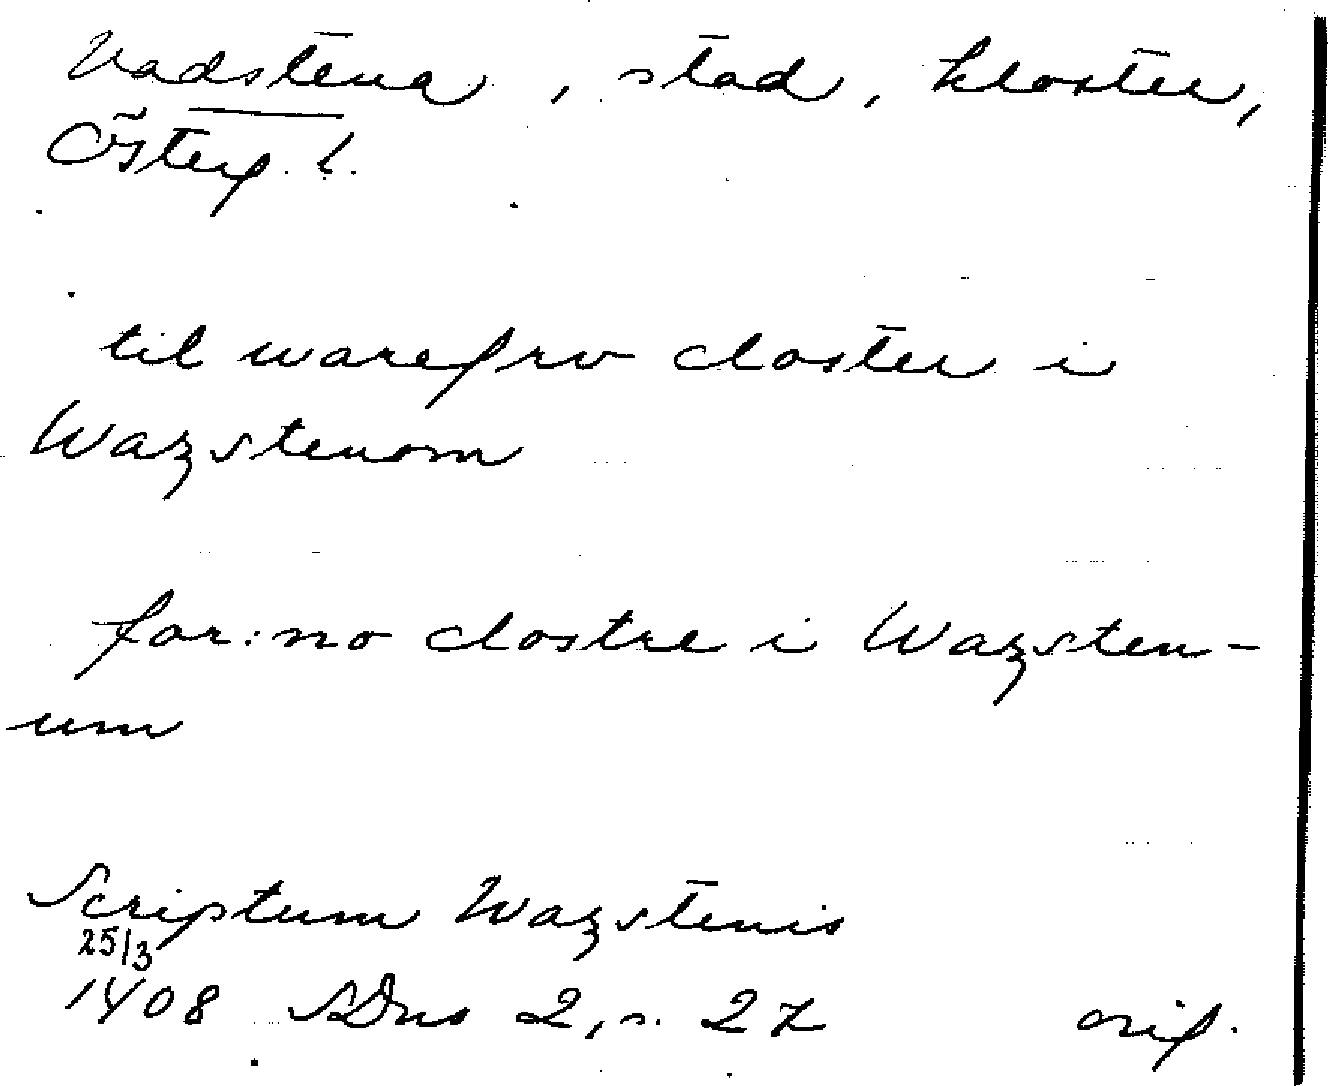 Vadstena, stad, kloster,
Österg. l.
til warefrv closter i
Wazstenom
for:no clostre i Wazsten-
um
Scriptum Wazstenis
25/3
1408 SDns 2, s. 27 orig.